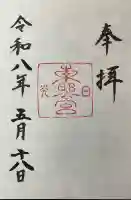 奉拝
東照宮
令和八年 五月十八日